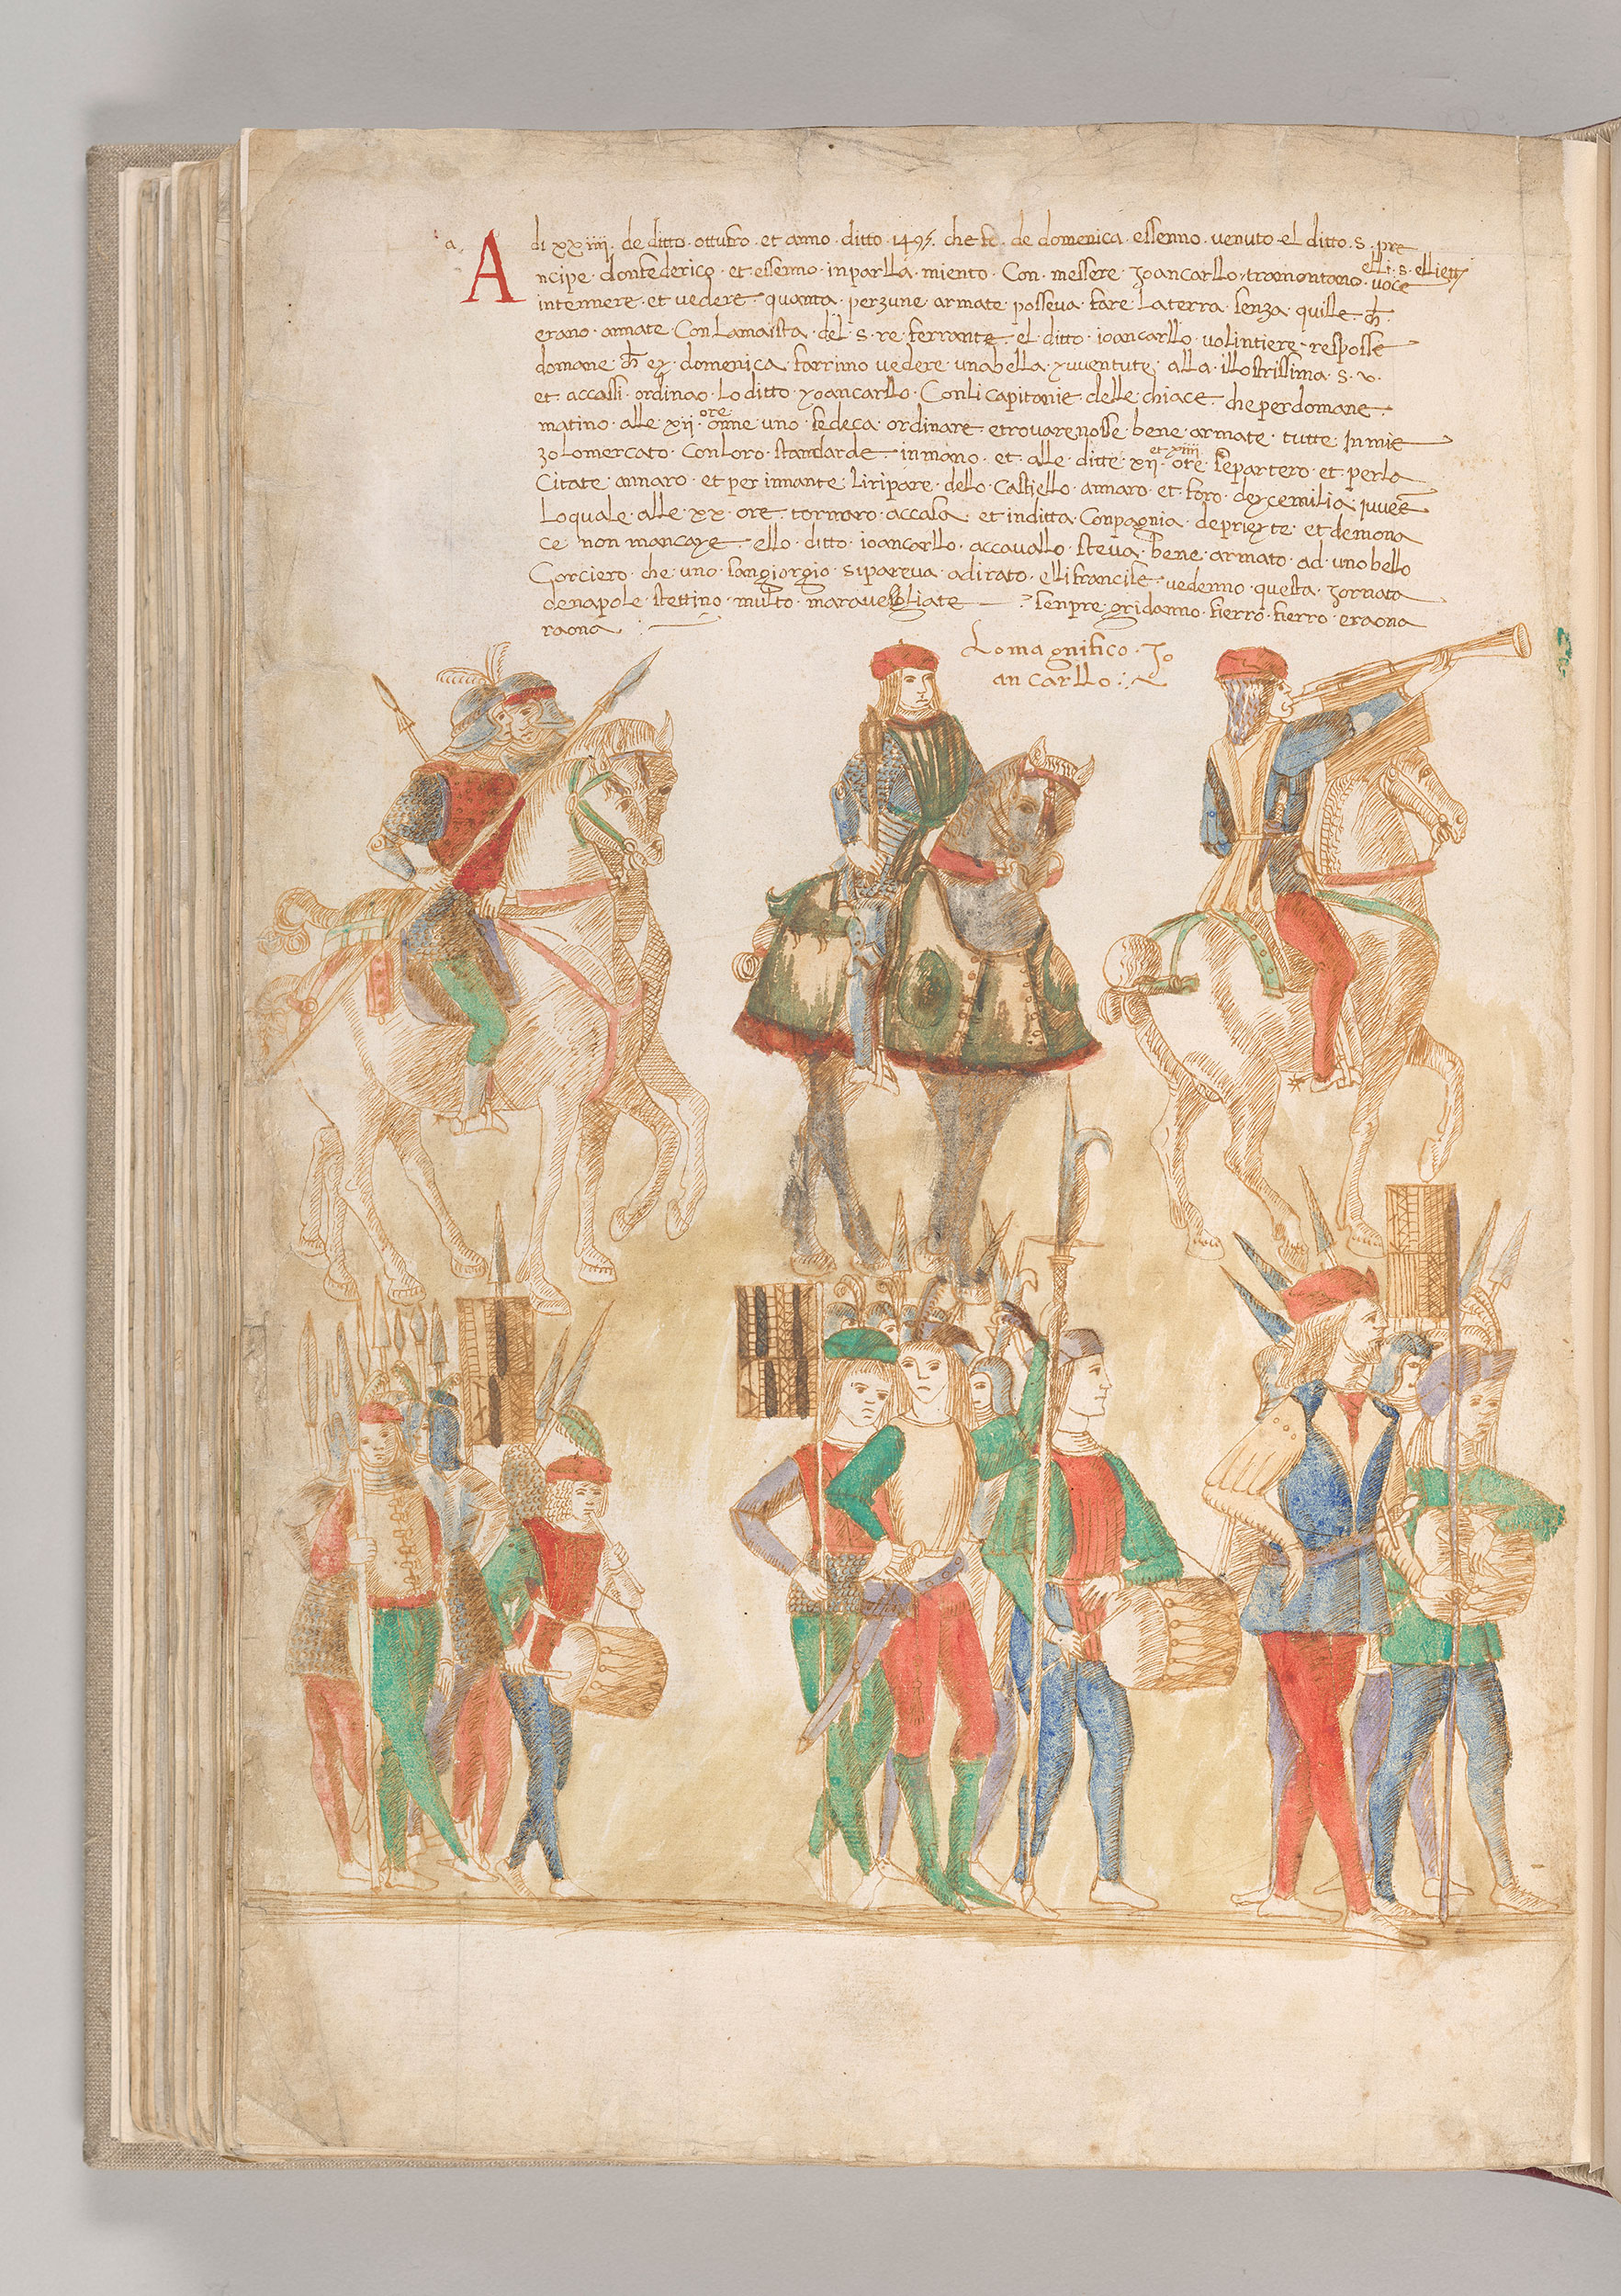 a.
A di xxiiii. de ditto. ottufro. et anno. ditto. 1495. che fo. de domenica. essenno. venuto. el ditto. s. pre
ncipe. donfederico. et essenno. inparlla. miento. Con. messere. Joancarllo. tramontano. voce
elli. s. elliett
intennere. et vedere. quanta. perzune armate. posseva. fare. La terra. senza. quille. ch.
erano. armate. Con Lamaista. del. s. re. ferrante. el. ditto. ioancarllo. volintiere. resposse
domane. ch. ey. domenica. farrimo vedere una bella. yuventute. alla. illostrissima. s. v.
et. accassi. ordinao. Lo ditto. yoancarllo. Con li capitanie. delle chiace. che per domane.
matino. alle. xii. ore. onne uno. se deca. ordinare. e trovarenosse. bene. armate. tutte. In mie
zo lo mercato. Con loro. standarde. in mano. et. alle. ditte. xii. et xiiii. ore. separtero. et. per la
Citate. annaro. et per innante. li ripare. dello. Castiello. annaro. et. foro. deycemilia. juvēs
Lo quale. alle. xx. ore. tornaro. accasa. et in ditta. Conpagnia. de prieyte. et demona
ce. non mancaye. ello. ditto. ioancarllo. accavallo. steva. bene. armato. ad. uno bello
Corciero. che. uno. sangiorgio. sipareva. adirato. elli francise. vedenno. questa. jornata
denapole. stettino. multo. maravelgliate. senpre. gridanno. fierro. fierro. eraona
raona
Lo magnifico. Jo
an carllo